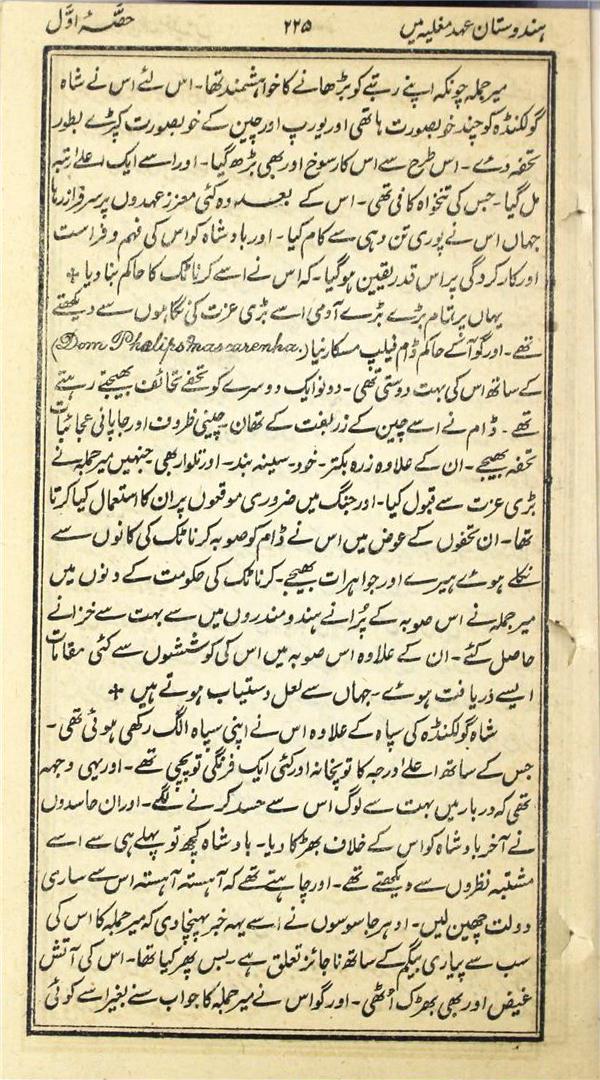 ہندوستان عہد مغلیہ میں ۲۲۵ حصّۂ اوّل
میر جملہ چونکہ اپنے رتبے کو بڑھانے کا خواہشمند تھا۔ اس لئے اس نے شاہ
گولکنڈہ کو چند خوبصورت ہاتھی اور یورپ اور چین کے خوبصورت کپڑے بطور
تحفہ دے۔ اس طرح سے اس کا رسوخ اور بھی بڑھ گیا۔ اور اسے ایک اعلےٰ رتبہ
مل گیا۔ جس کی تنخواہ کافی تھی۔ اس کے بعد وہ کئی معزز عہدوں پر سرفراز رہا
جہاں اس نے پوری تن دہی سے کام کیا۔ اور بادشاہ کو اس کی فہم و فراست
اور کارکردگی پر اس قدر یقین ہوگیا۔ کہ اس نے اسے کرناٹک کا حاکم بنا دیا ÷
یہاں پر تمام بڑے بڑے آدمی اسے بڑی عزت کی نگاہوں سے دیکھتے
تھے۔ اور گوآ کے حاکم ڈام فیلپ مسکارنیا (Dom Phelips Mascarenha.)
کے ساتھ اس کی بہت دوستی تھی۔ دونو ایک دوسرے کو تحفے تحائف بھیجتے رہتے
تھے۔ ڈام نے اسے چین کے زربفت کے تھان۔ چینی ظروف اور جاپانی عجائبات
تحفہ بھیجے۔ ان کے علاوہ زرہ بکتر۔ خود۔ سینہ بند۔ اور تلوار بھی۔ جنہیں میر جملہ نے
بڑی عزت سے قبول کیا۔ اور جنگ میں ضروری موقعوں پر ان کا استعمال کیا کرتا
تھا۔ ان تحفوں کے عوض میں اس نے ڈام کو صوبہ کرناٹک کی کانوں سے
نکلے ہوئے ہیرے اور جواہرات بھیجے۔ کرناٹک کی حکومت کے دنوں میں
میر جملہ نے اس صوبہ کے پُرانے ہندو مندروں میں سے بہت سے خزانے
حاصل کئے۔ ان کے علاوہ اس صوبہ میں اس کی کوششوں سے کئی مقامات
ایسے دریافت ہوئے۔ جہاں سے لعل دستیاب ہوتے ہیں ÷
شاہ گولکنڈہ کی سپاہ کے علاوہ اس نے اپنی سپاہ الگ رکھی ہوئی تھی۔
جس کے ساتھ اعلےٰ درجہ کا توپخانہ اور کئی ایک فرنگی توپچی تھے۔ اور یہی وجہ
تھی کہ دربار میں بہت سے لوگ اس سے حسد کرنے لگے۔ اور ان حاسدوں
نے آخر بادشاہ کو اس کے خلاف بھڑکا دیا۔ بادشاہ کچھ تو پہلے ہی سے اسے
مشتبہ نظروں سے دیکھتے تھے۔ اور چاہتے تھے کہ آہستہ آہستہ اس سے ساری
دولت چھین لیں۔ ادہر جاسوسوں نے اسے یہ خبر پہنچا دی کہ میر جملہ کا اس کی
سب سے پیاری بیگم کے ساتھ ناجائز تعلق ہے۔ بس پھر کیا تھا۔ اس کی آتش
غیض اور بھی بھڑک اُٹھی۔ اور گو اس نے میر جملہ کا جواب سنے بغیر اسے کوئی